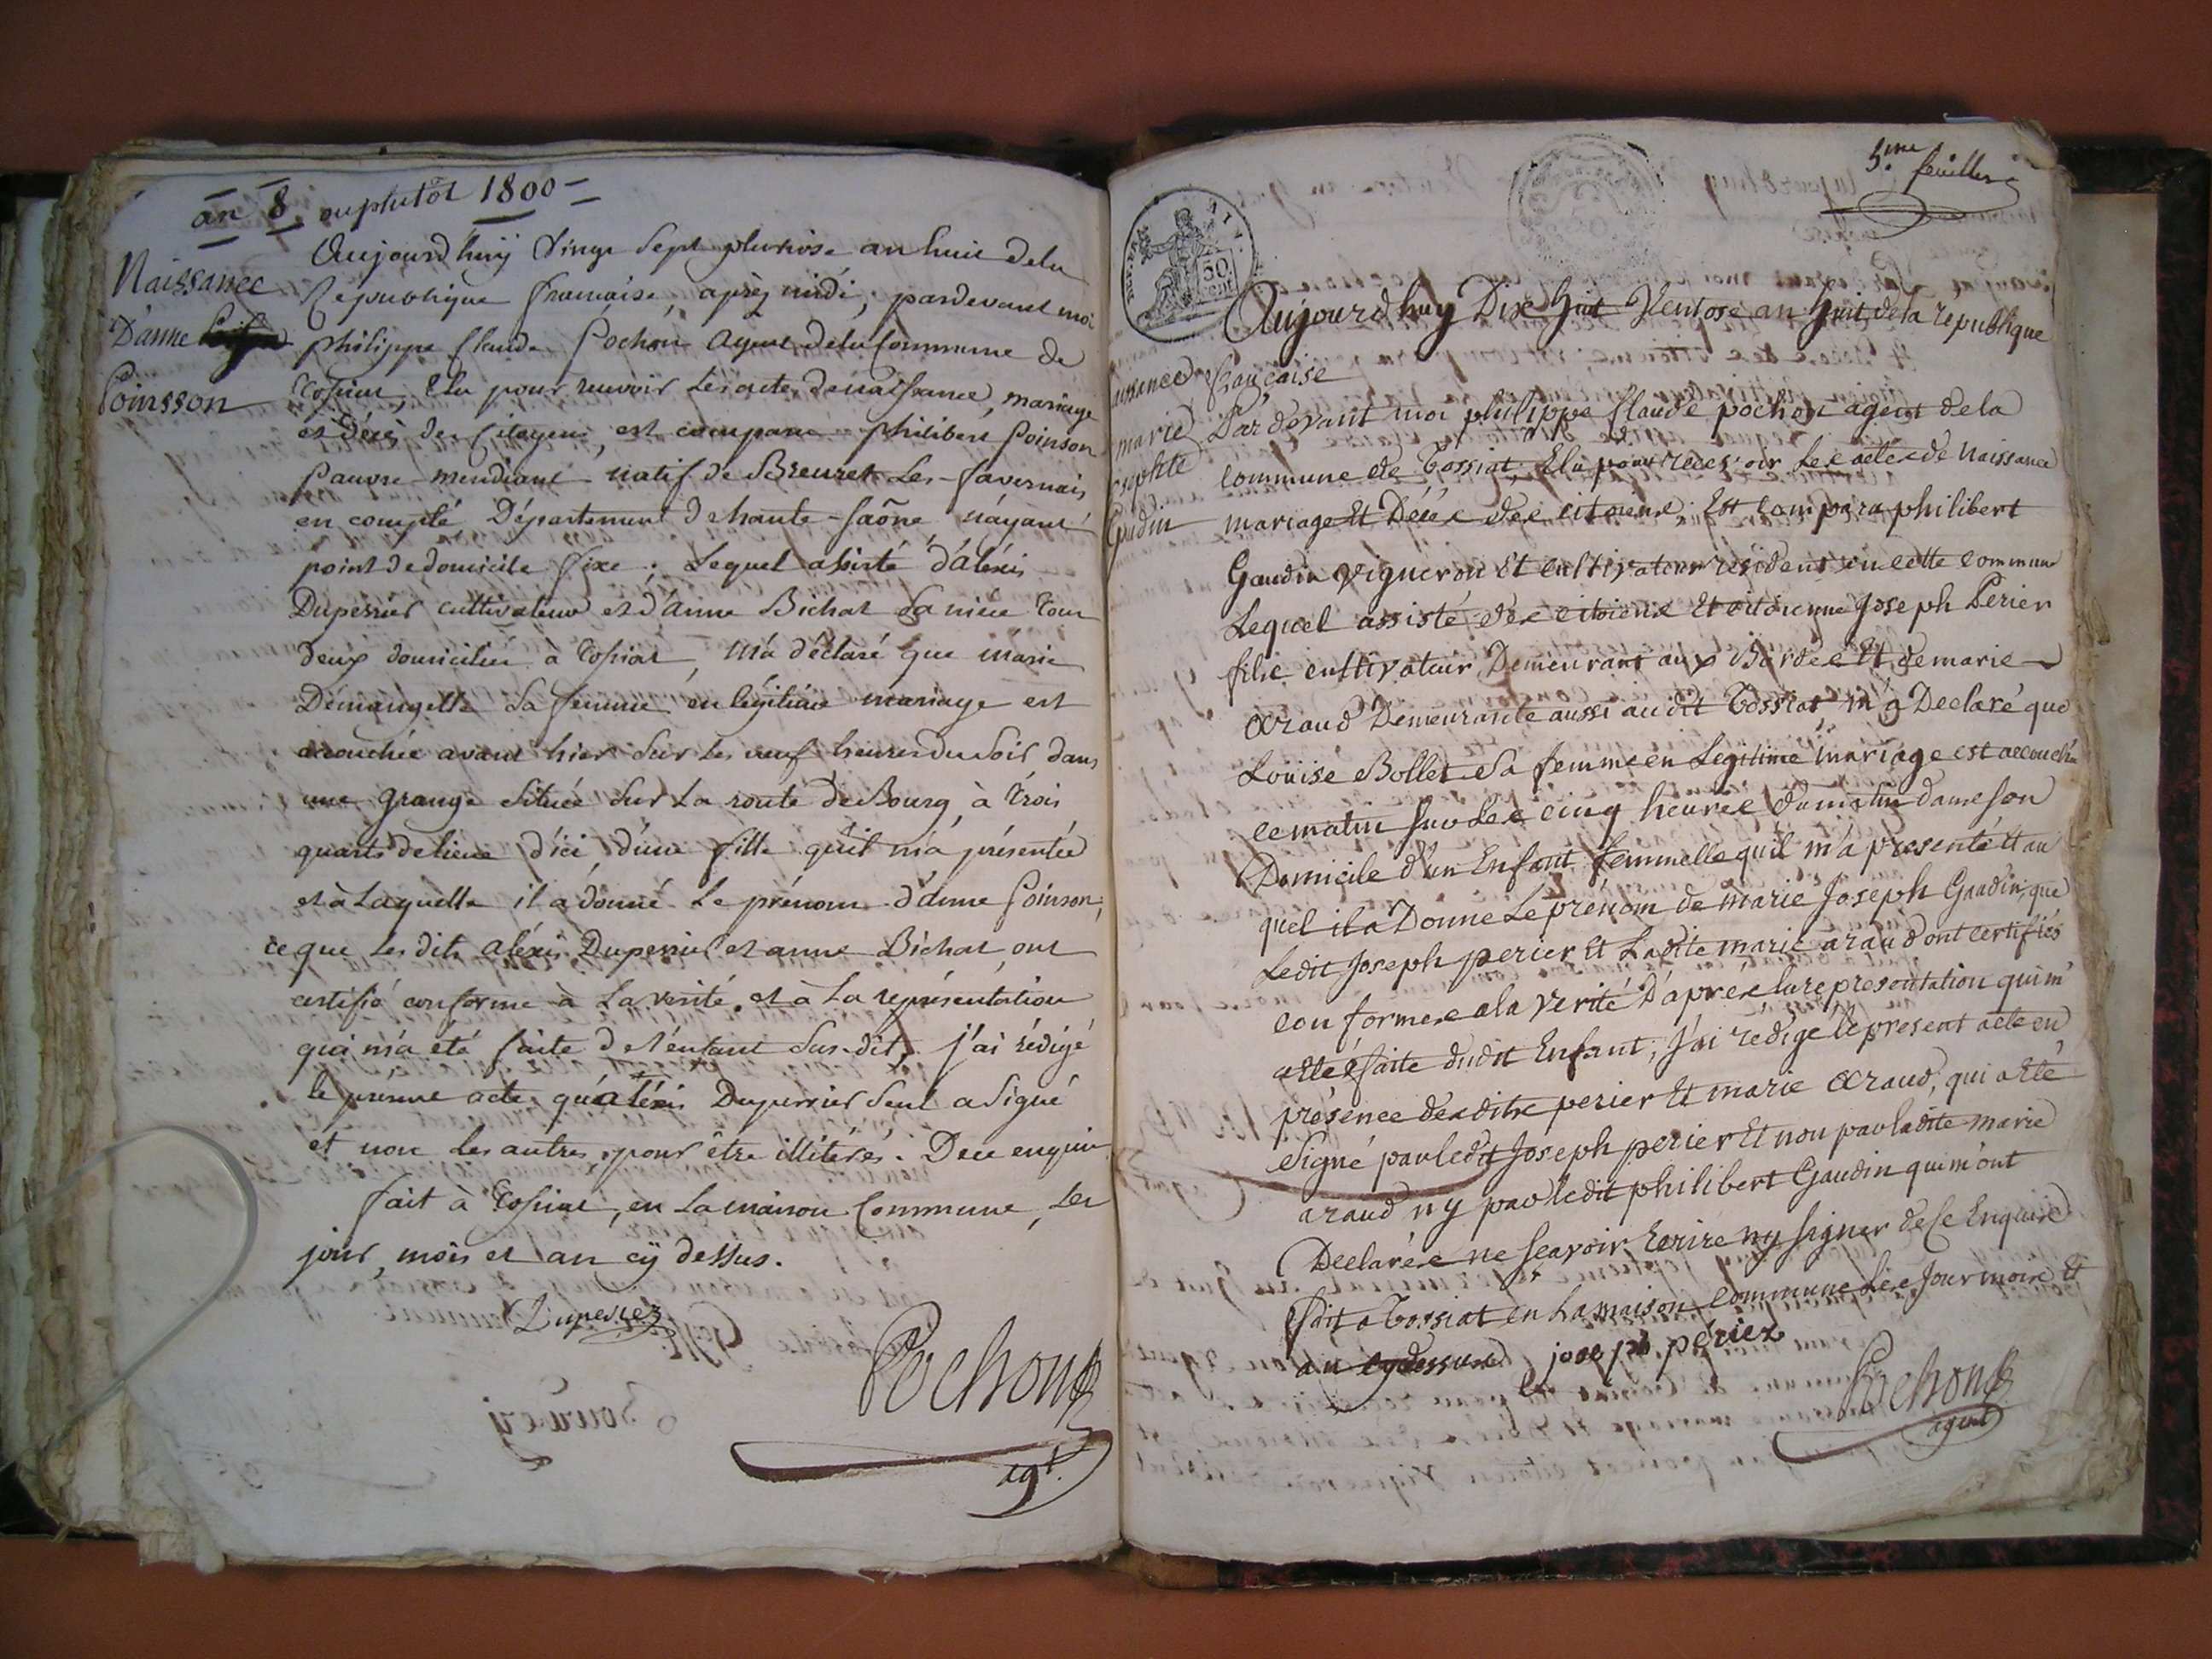 an 8 ou plutôt 1800
Naissance
D'anne
Poinsson
Aujourd'huy vingt sept pluviose an huit de la
République française, après midi, pardevant moi
philippe Claude Pochon agent de la Commune de
Tossiat, élu pour recevoir les actes de naissance, mariage
et décès des Citoyens, est comparu philibert Poinson
Pauvre mendiant natif de Breuret-Les-favernais
en compté, Département de haute-saône, n'ayant
point de domicile fixe; Lequel assisté d'aléxis
Duperrier cultivateur et d'anne Bichat sa nièce tous
deux domiciliés à Tossiat, m'a déclaré que marie
Démangelle sa femme en légitime mariage est
accouchée avant hier sur les neuf heures du soir dans
une grange située sur la route de Bourg, à trois
quarts de lieue d'ici, d'une fille qu'il m'a présentée
et à Laquelle il a donné le prénom d'anne Poinson,
ce que les dits aléxis Duperrier et anne Bichat ont
certifié conforme à La vérité, et à La représentation
qui m'a été faite de l'enfant sus-dit, j'ai rédigé
le présent acte qu'aléxis Duperrier seul a signé
et non les autres, pour être illitérés. De ce enquis
fait à Tossiat, en la maison Commune, les
jour, mois et an cÿ dessus.
Duperriez
Pochon
agt.
5.me feuillet
Aujourd huy Dix huit Ventose an huit de la republique
française
Naissance
marie
josephte
Gaudin
Par devant moi philippe Claude pochon agent de la
commune de Tossiat, Elu pour recevoir les actes de Naissance
mariage Et Décés des citoiens Est Comparu philibert
Gaudin vigneron Et cultivateur résident en cette commune
Lequel assisté des citoiens Et citoienne Joseph Perier
fils cultivateur Demeurant aux Bordes Et de marie
araud Demeurante aussi audit Tossiat, m'a Declaré que
Louise Bollet sa femme en Legitime mariage est accouchée
ce matin sur les cinq heures du matin dans son
Domicile d'un Enfant femmelle qu'il m'a presenté Et au
quel il a Donné Le prénom de marie Joseph Gaudin, que
Ledit Joseph perier Et Ladite marie araud ont certifiés
conformes a la verité D'aprés la representation qui m'
a Eté faite dudit Enfant, J'ai redigé le present acte en
présence desdits perier Et marie araud, qui a Eté
Signé par ledit Joseph perier Et non par ladite marie
araud ny par ledit philibert Gaudin qui m'ont
Declarés ne scavoir Ecrire ny signer de ce Enquis
Fait a Tossiat en La maison commune Les Jour mois Et
an cydessus
joseph périez
Pochon
agent